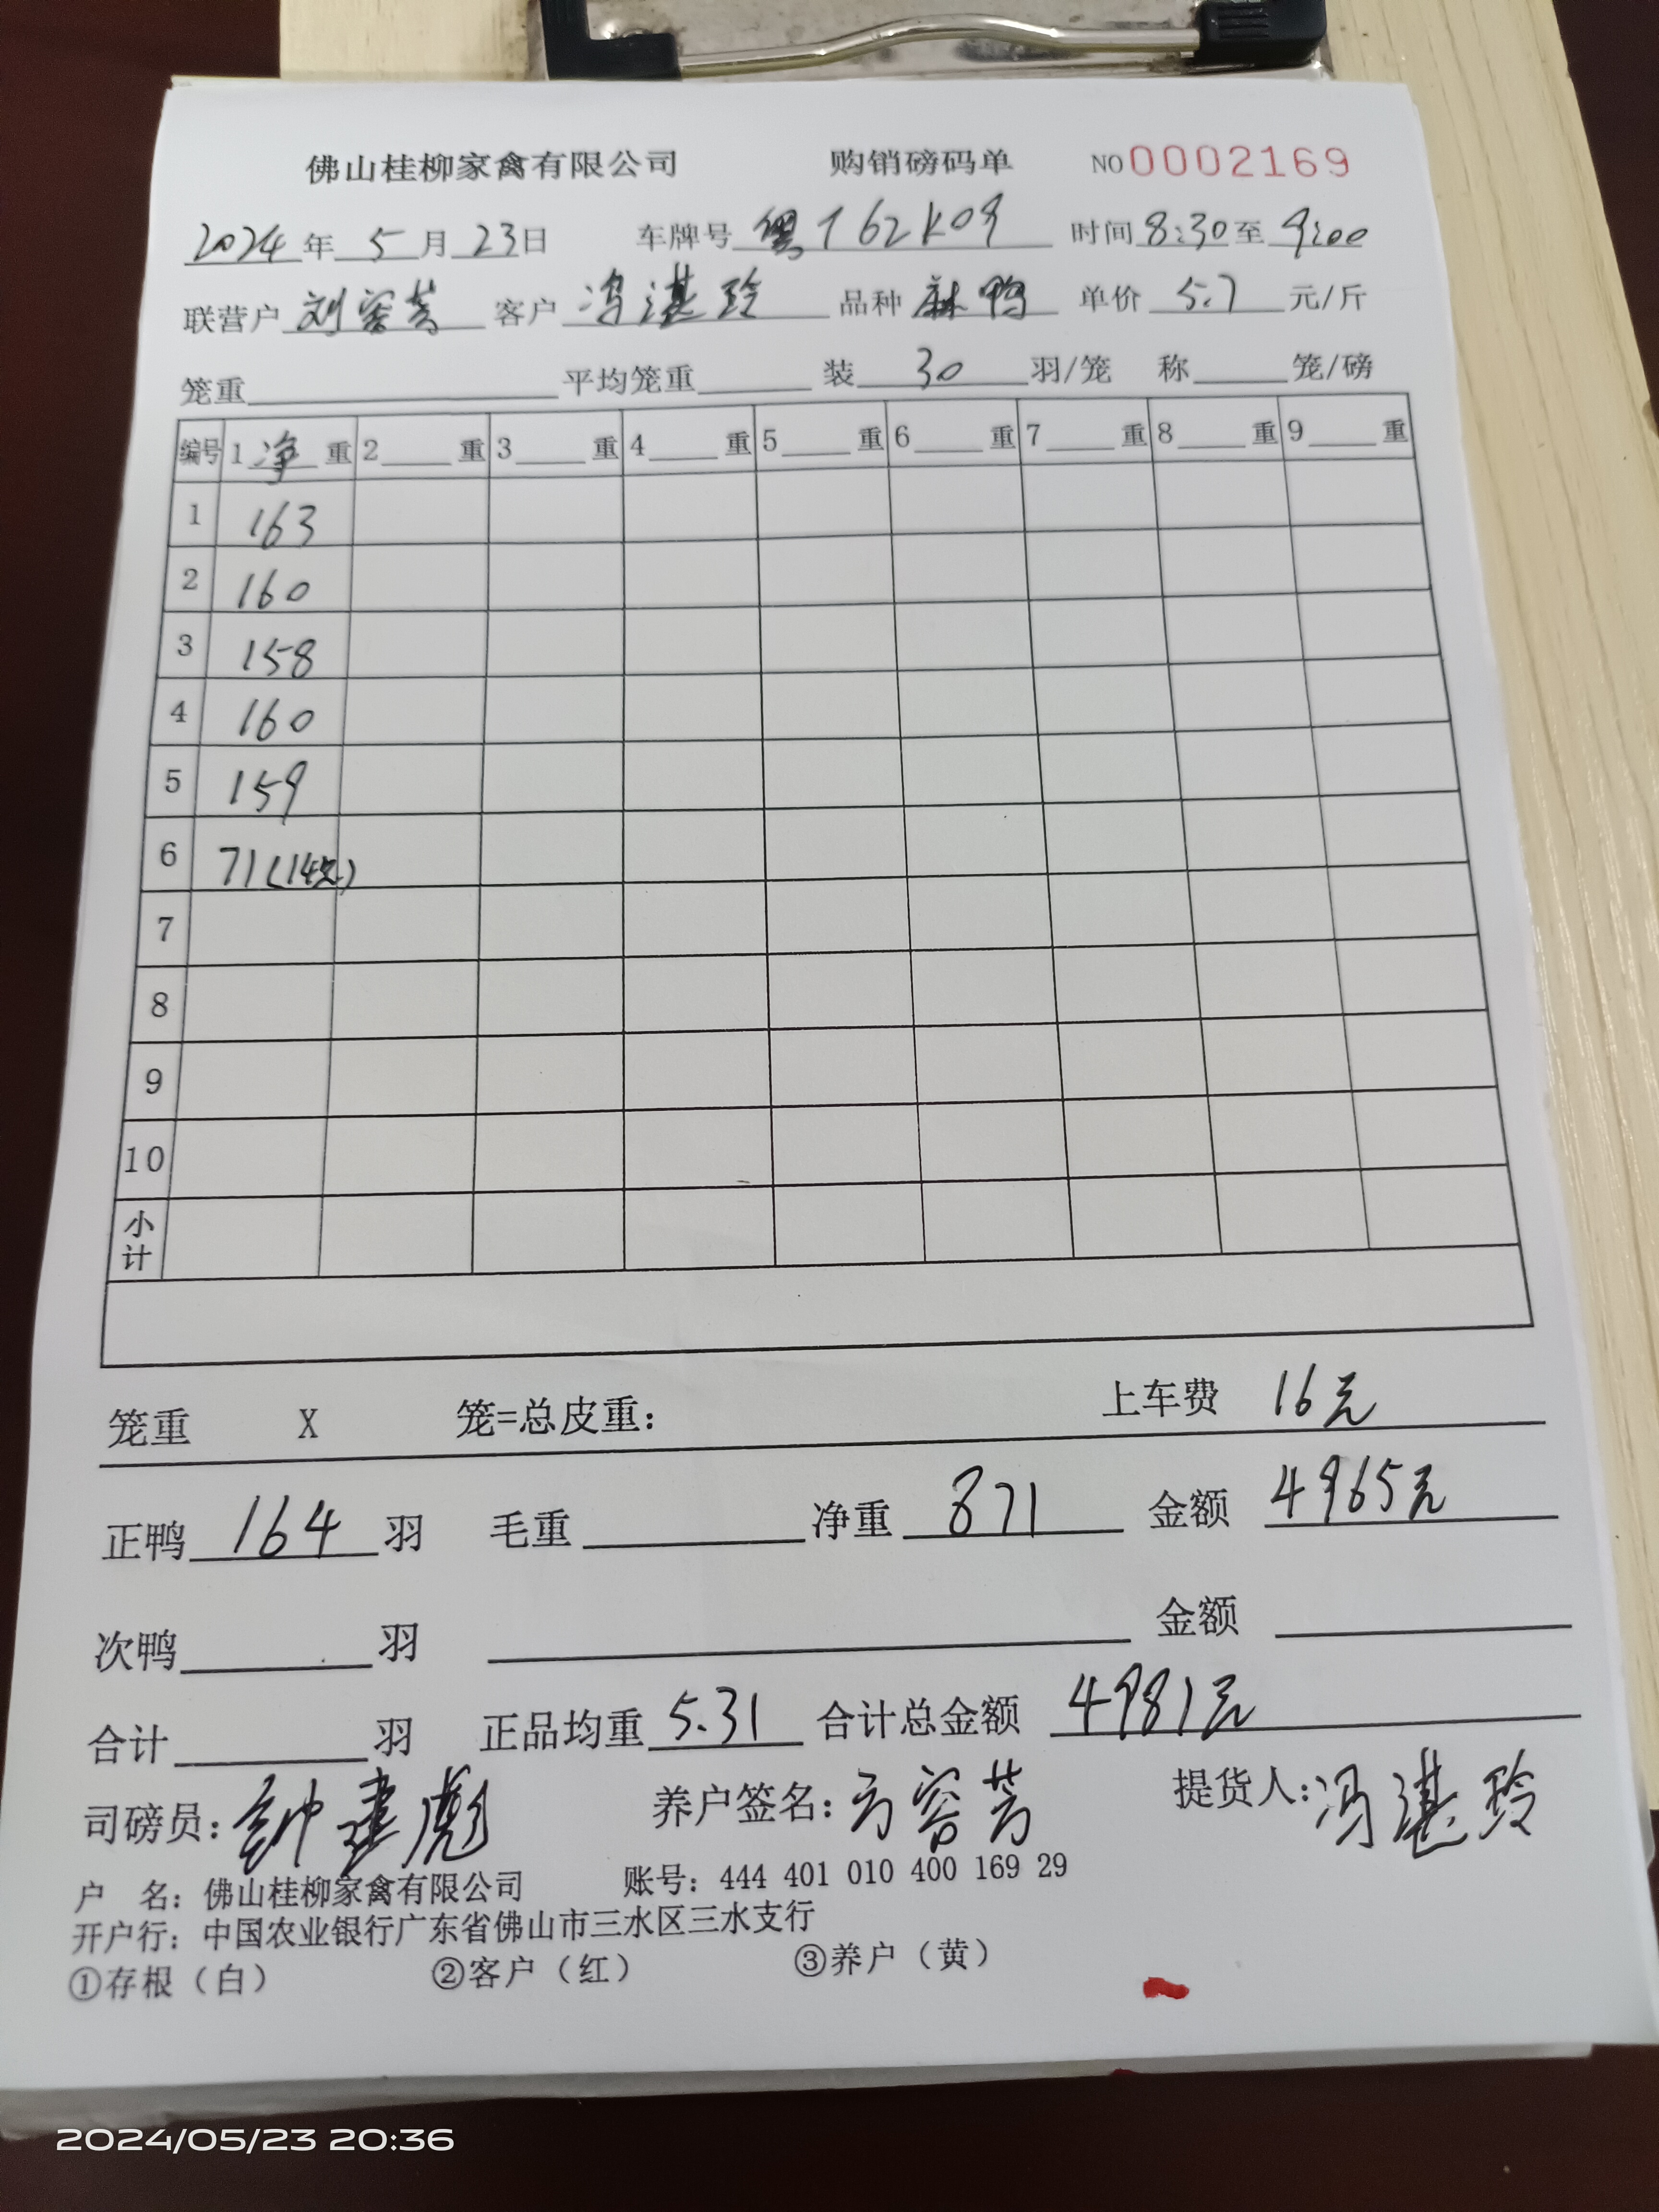 佛山桂柳家禽有限公司 购销磅码单 NO 0002169
2024年 5月 23日 车牌号 粤T62K09 时间 8:30 至 9:00
联营户 刘容芳 客户 冯湛玲 品种 麻鸭 单价 5.7 元/斤
笼重 平均笼重 装 30 羽/笼 称 笼/磅
编号 1 净 重 2 重 3 重 4 重 5 重 6 重 7 重 8 重 9 重
1 163
2 160
3 158
4 160
5 159
6 71(14只)
7
8
9
10
小计
笼重 X 笼=总皮重: 上车费 16元
正鸭 164 羽 毛重 净重 871 金额 4965元
次鸭 羽 金额
合计 羽 正品均重 5.31 合计总金额 4981元
司磅员: 钟建彪 养户签名: 容芳 提货人: 冯湛玲
户 名: 佛山桂柳家禽有限公司 账号: 444 401 010 400 169 29
开户行: 中国农业银行广东省佛山市三水区三水支行
①存根（白） ②客户（红） ③养户（黄）
2024/05/23 20:36